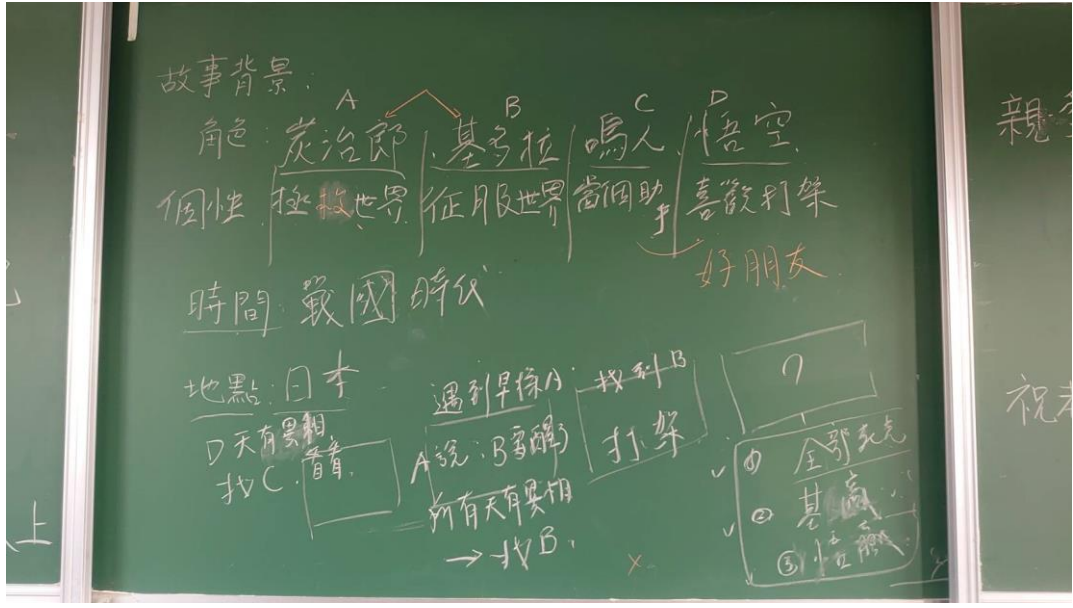 故事背景:
A B C D
角色: 炭治郎 基多拉 鳴人 悟空
個性 拯救世界 征服世界 當個助手 喜歡打架
好朋友
時間: 戰國時代
地點: 日本
D天有異相
找C.看看.
遇到早係A.
A說:B要醒了
所有天有異相
→找B.
找到B
打架
?
① 全部死光
② 基贏
③ 悟贏
親
祝
上